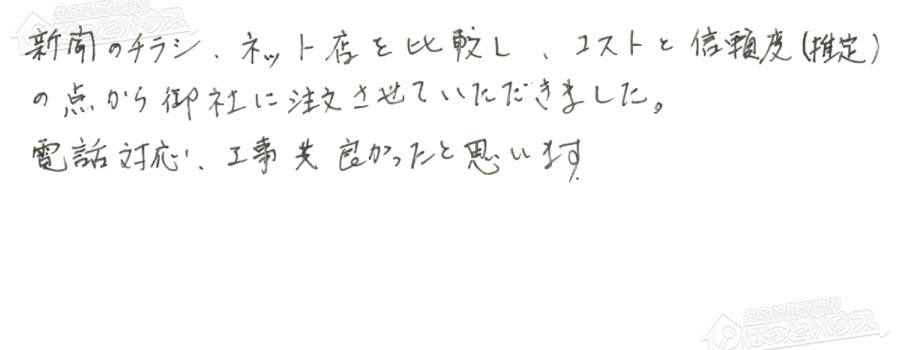 新聞のチラシ、ネット店を比較し、コストと信頼度(推定)
の点から御社に注文させていただきました。
電話対応、工事共良かったと思います.
ほっとハウス